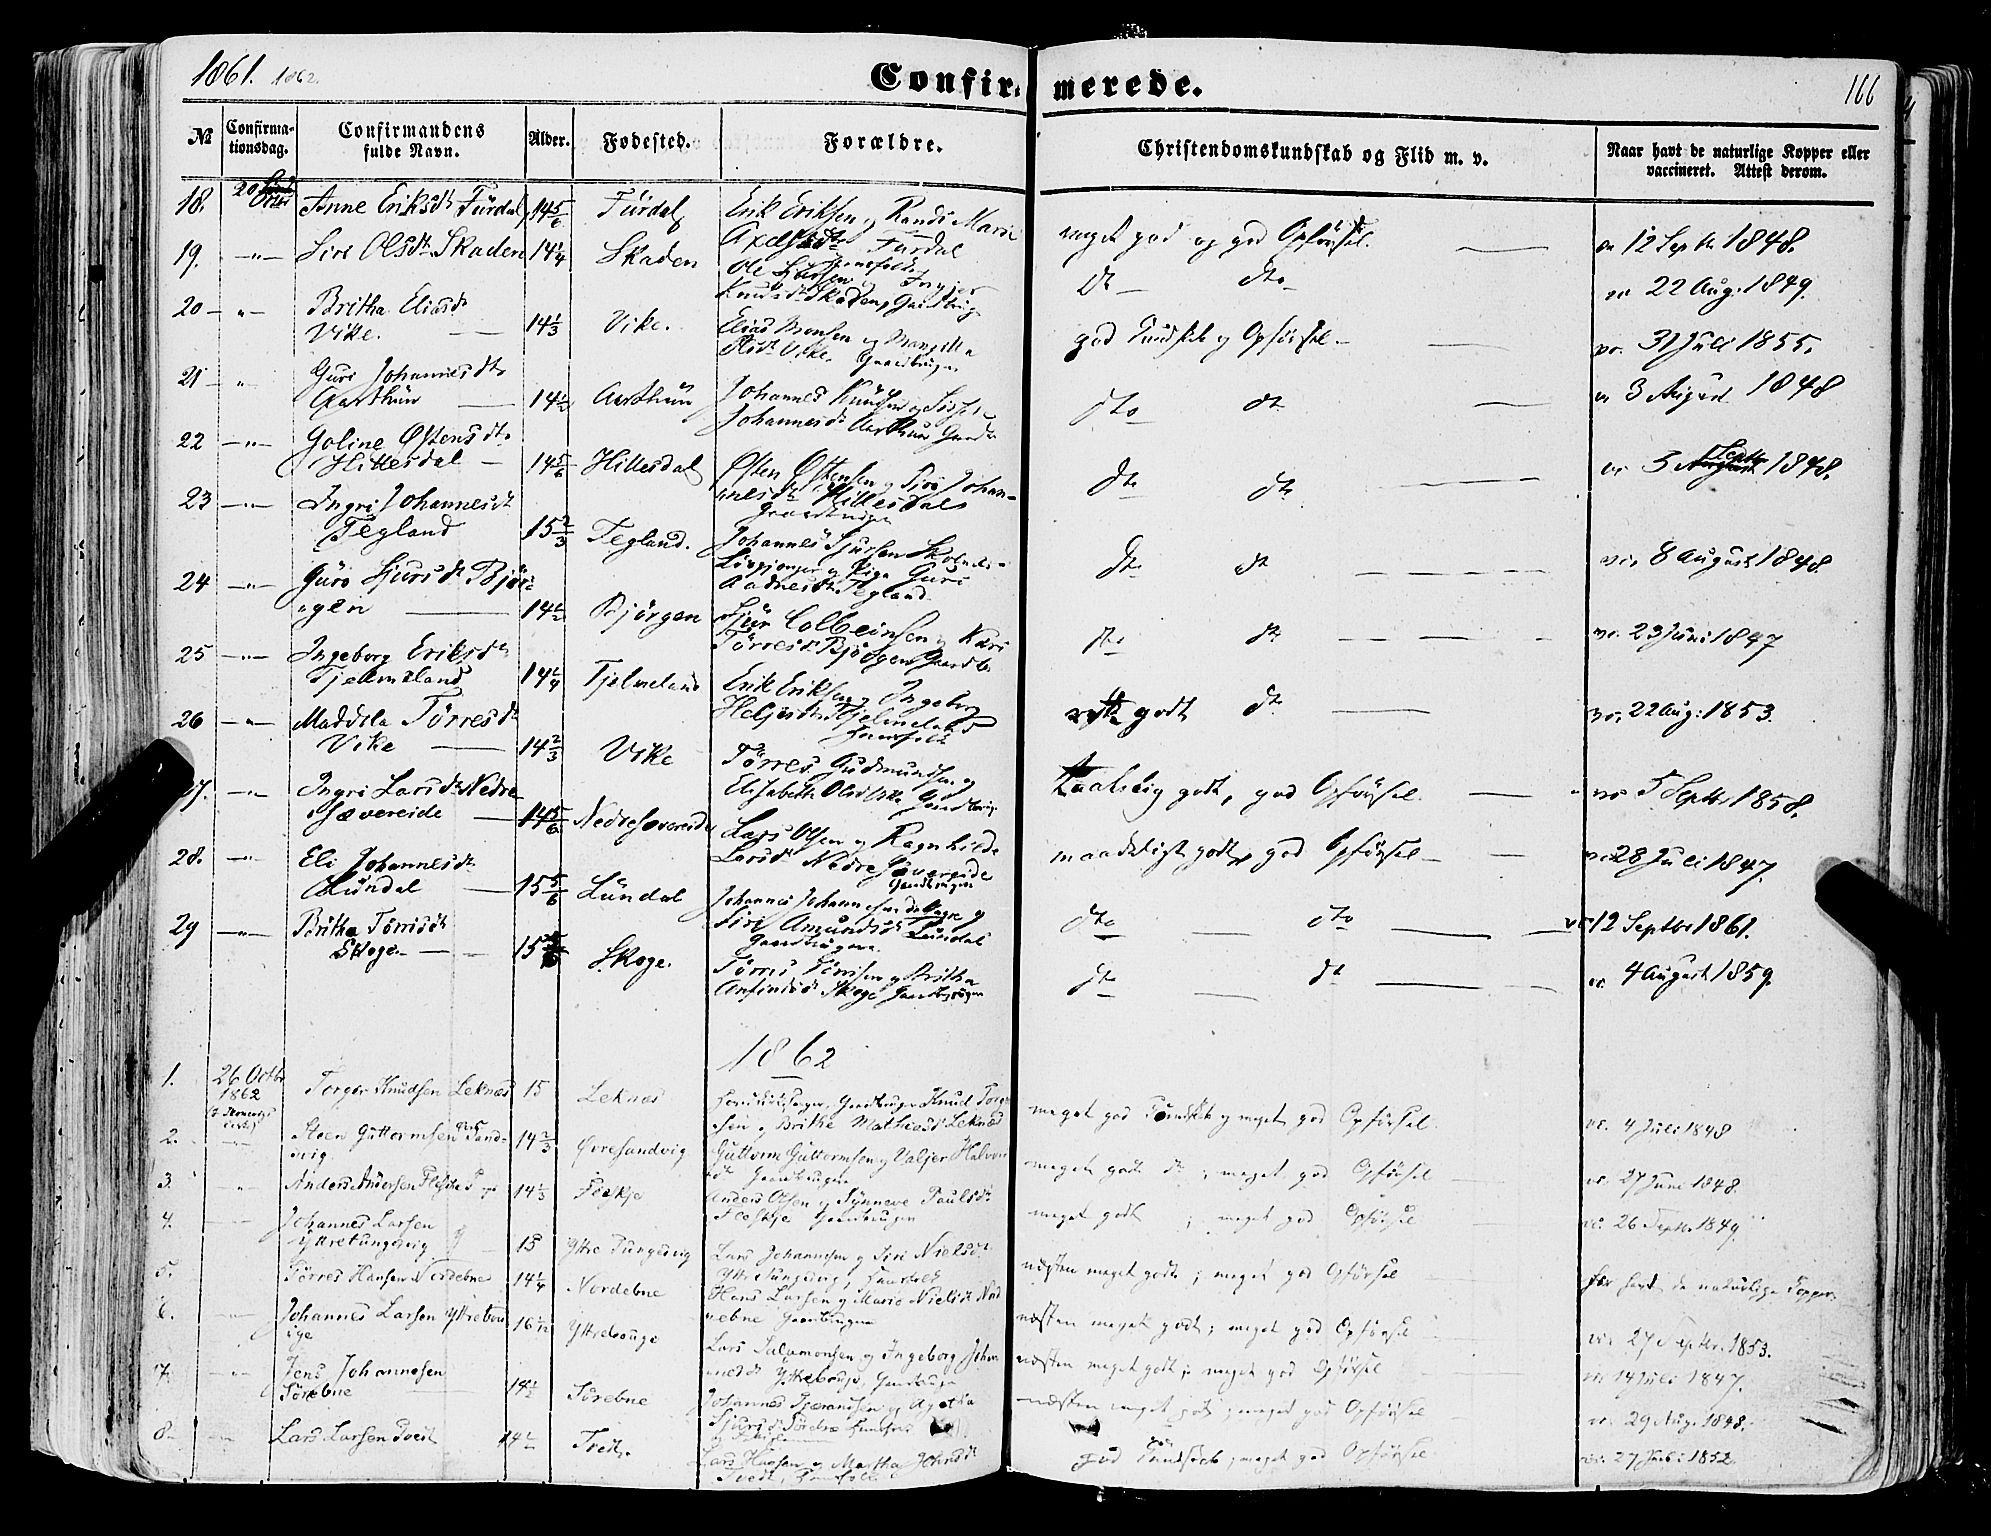 1861. 1862.
Confirmerede.
166
№
Confirma-
tionsdag.
Confirmandens
fulde Navn.
Alder.
Fødested.
Forældre.
Christendomskundskab og Flid m. v.
Naar havt de naturlige Kopper eller
vaccineret. Attest derom.
18. 20 Anne Eriksdtr Furdal 14 5/6 Furdal Erik Eriksen og Randi Marie
Axelsdtr Furdal
meget god og god Opførsel. 12 Septbr 1848.
19. -"- Siri Olsdtr Skaden 14 1/4 Skaden Ole Larsen Inger
Knudsdtr Skaden, Gaardbrug
dto dto 22 Aug. 1849.
20 -"- Britha Eliasdtr
Vike. 14 1/3 Vike. Elias Monsen og
Vike. Gaardbruger
god Kundskab og Opførsel 31 Juli 1855.
21 -"- Guri Johannesdtr
Aarthun 14 1/2 Aarthun Johannes
Johannesdtr Aarthun
dto dto 3 August 1848
22 -"- Goline Østensdtr
Hillesdal 14 5/6 Hillesdal Østen Østensen og Siri Johan-
nesdtr Hillesdal
Gaardbruger
dto dto 5 Septbr 1848.
23 -"- Ingri Johannesdtr
Tegland 15 2/3 Tegland. Johannes Sjursen
og Pige Guri
Aadnesdtr Tegland
dto dto 8 August 1848.
24 -"- Guro Sjursdtr Bjør-
gen 14 1/2 Bjørgen Sjur Colbeinsen og Kari
Tørresdtr Bjørgen Gaardb.
dto dto 23 Juni 1847
25 -"- Ingeborg Eriksdtr
Tjelmeland 14 1/4 Tjelmeland Erik Eriksen og Ingeborg
Helgesdtr Tjelmeland
Huusfolk
godt dto 22 Aug: 1853.
26 -"- Maddela Tørresdtr
Vike 14 2/3 Vike Tørres Gudmundsen og
Elisabeth Olsdtr Vike Gaardbrug
Taalelig godt, god Opførsel. 5 Septbr 1858.
27. -"- Ingri Larsdtr Nedre
Sævereide 14 5/6 Nedresævereide Lars Olsen og Ragnhilde
Larsdtr Nedre Sævereide
Gaardbruger
maadeligt godt, god Opførsel 28 Juli 1847.
28. -"- Eli Johannesdtr
Lundal 15 5/6 Lundal Johannes Johannesen og
Siri Amundsdtr Lundal
Gaardbrugere
dto dto 12 Septbr 1861.
29 -"- Britha Tørrisdtr
Skoge. 15 Skoge. Tørres Tørrisen og Britha
Anfindsdtr Skoge Gaardbruger
dto dto 4 August 1859.
1862
1. 26 Octbr
1862
Torger Knudsen Leknæs 15 Leknæs Gaardbruger Knud Torger-
sen og Brithe Mathiasdtr Leknæs
meget god Kundskab og meget god Opførsel. 4 Juli 1848
2. -"- Steen Guttormsen Sand-
vig 14 2/3 Øvresandvig Guttorm Guttormsen og Valjer Halvors
dtr Gaardbruger
meget godt dto, meget god Opførsel 27 Juni 1848.
3. -"- Anders Andersen Fleskje 14 1/3 Fleskje Anders Olsen og Synneve Paulsdtr
Fleskje Gaardbruger
meget godt; meget god Opførsel 26 Septbr 1849.
4. -"- Johannes Larsen
Yttretungesvig 15 Yttre Tungesvig Lars Johannesen og Siri Nielsdtr
Yttretungesvig, Huusfolk
næsten meget godt; meget god Opførsel har havt de naturlige Kopper
5. Tørres Hansen Nordebne 14 1/4 Nordebne Hans Larsen og Mario Nielsdtr Nord
ebne Gaardbruger
næsten meget godt; meget god Opførsel 27 Septbr. 1853.
6. -"- Johannes Larsen Yttrebou-
ge 16 1/12 Yttrebouge Lars Salamonsen og Ingeborg Johan
nesdtr Yttrebouge, Gaardbruger
næsten meget godt; meget god Opførsel 14 Juli 1847.
7. -"- Jens Johannesen
Sørebne 14 1/2 Sørebne Johannes Tjerandsen og Agatha
Sjursdtr Sørebne Huusfolk
næsten meget godt; meget god Opførsel 29 Aug. 1848.
8. -"- Lars Larsen Tveit 14 1/2 Tveit. Lars Hansen og Martha Johnsdtr
Tvedt, Huusfolk
god Kundskab; meget god Opførsel 27 Juli 1852.